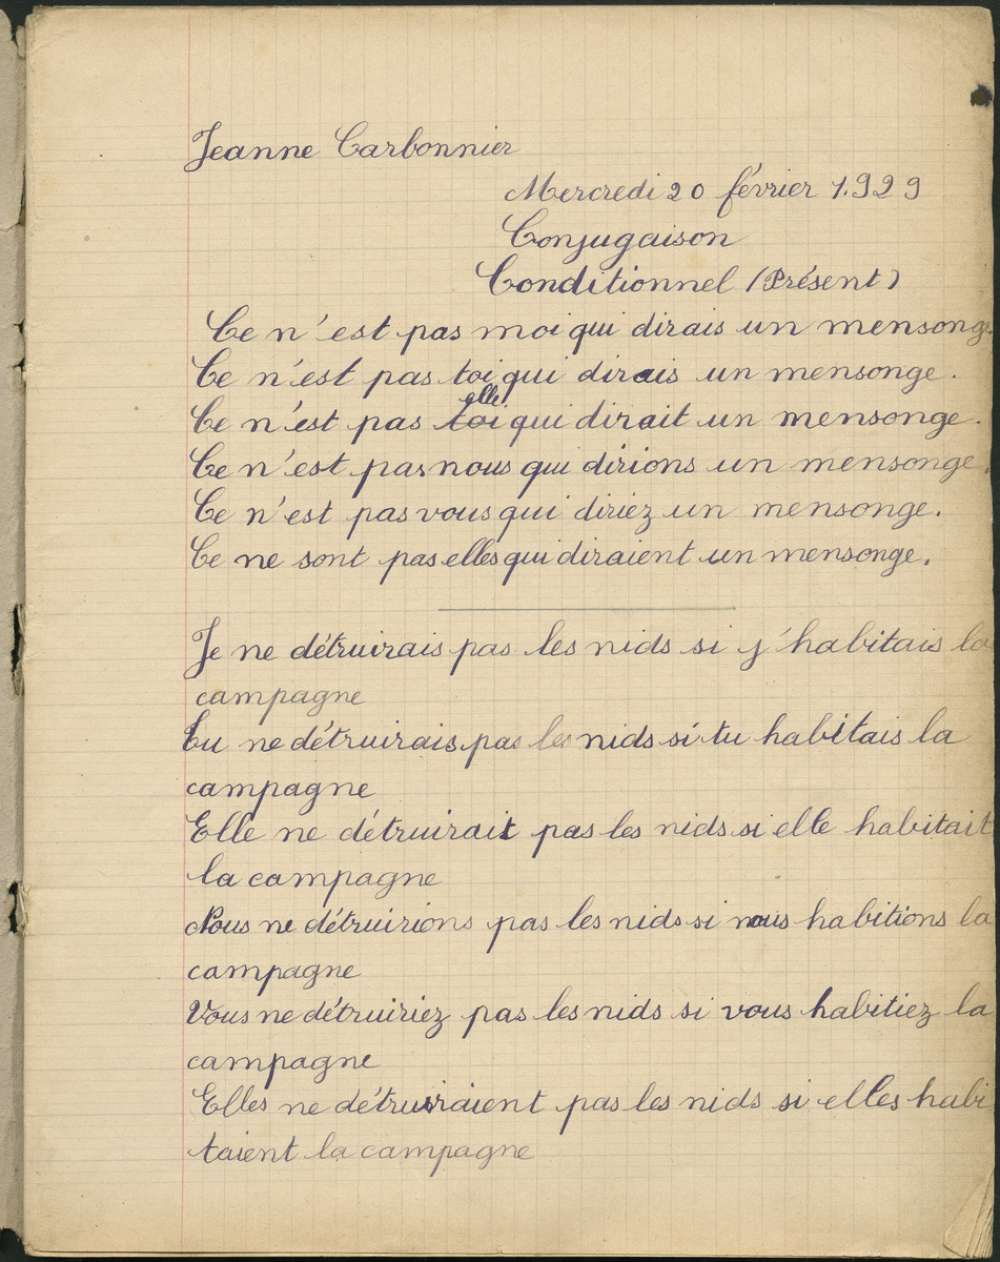 Jeanne Carbonnier
Mercredi 20 février 1.929
Conjugaison
Conditionnel (Présent)
Ce n'est pas moi qui dirais un mensonge.
Ce n'est pas toi qui dirais un mensonge.
elle
Ce n'est pas toi qui dirait un mensonge.
Ce n'est pas nous qui dirions un mensonge.
Ce n'est pas vous qui diriez un mensonge.
Ce ne sont pas elles qui diraient un mensonge.
Je ne détruirais pas les nids si j'habitais la
campagne
Tu ne détruirais pas les nids si tu habitais la
campagne
Elle ne détruirait pas les nids si elle habitait
la campagne
Nous ne détruirions pas les nids si nous habitions la
campagne
Vous ne détruiriez pas les nids si vous habitiez la
campagne
Elles ne détruiraient pas les nids si elles habi
taient la campagne